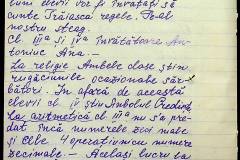 luni elevii vor fi învățați să
cunte Trăiască regele. Pe al
nostru steag.
cl. IIIª și IVª învățătoare An-
toniuc Ana.
La religie Ambele clase știu
rugăciunile ocazionale săr-
bători. În afară de aceasta
elevii cl. IV știu Simbolul Credinței
La aritmetică cl. IIIª nu s'a pre-
dat încă numerele zecimale
și cele 4 operațiuni cu numere
zecimale. - Același lucru la